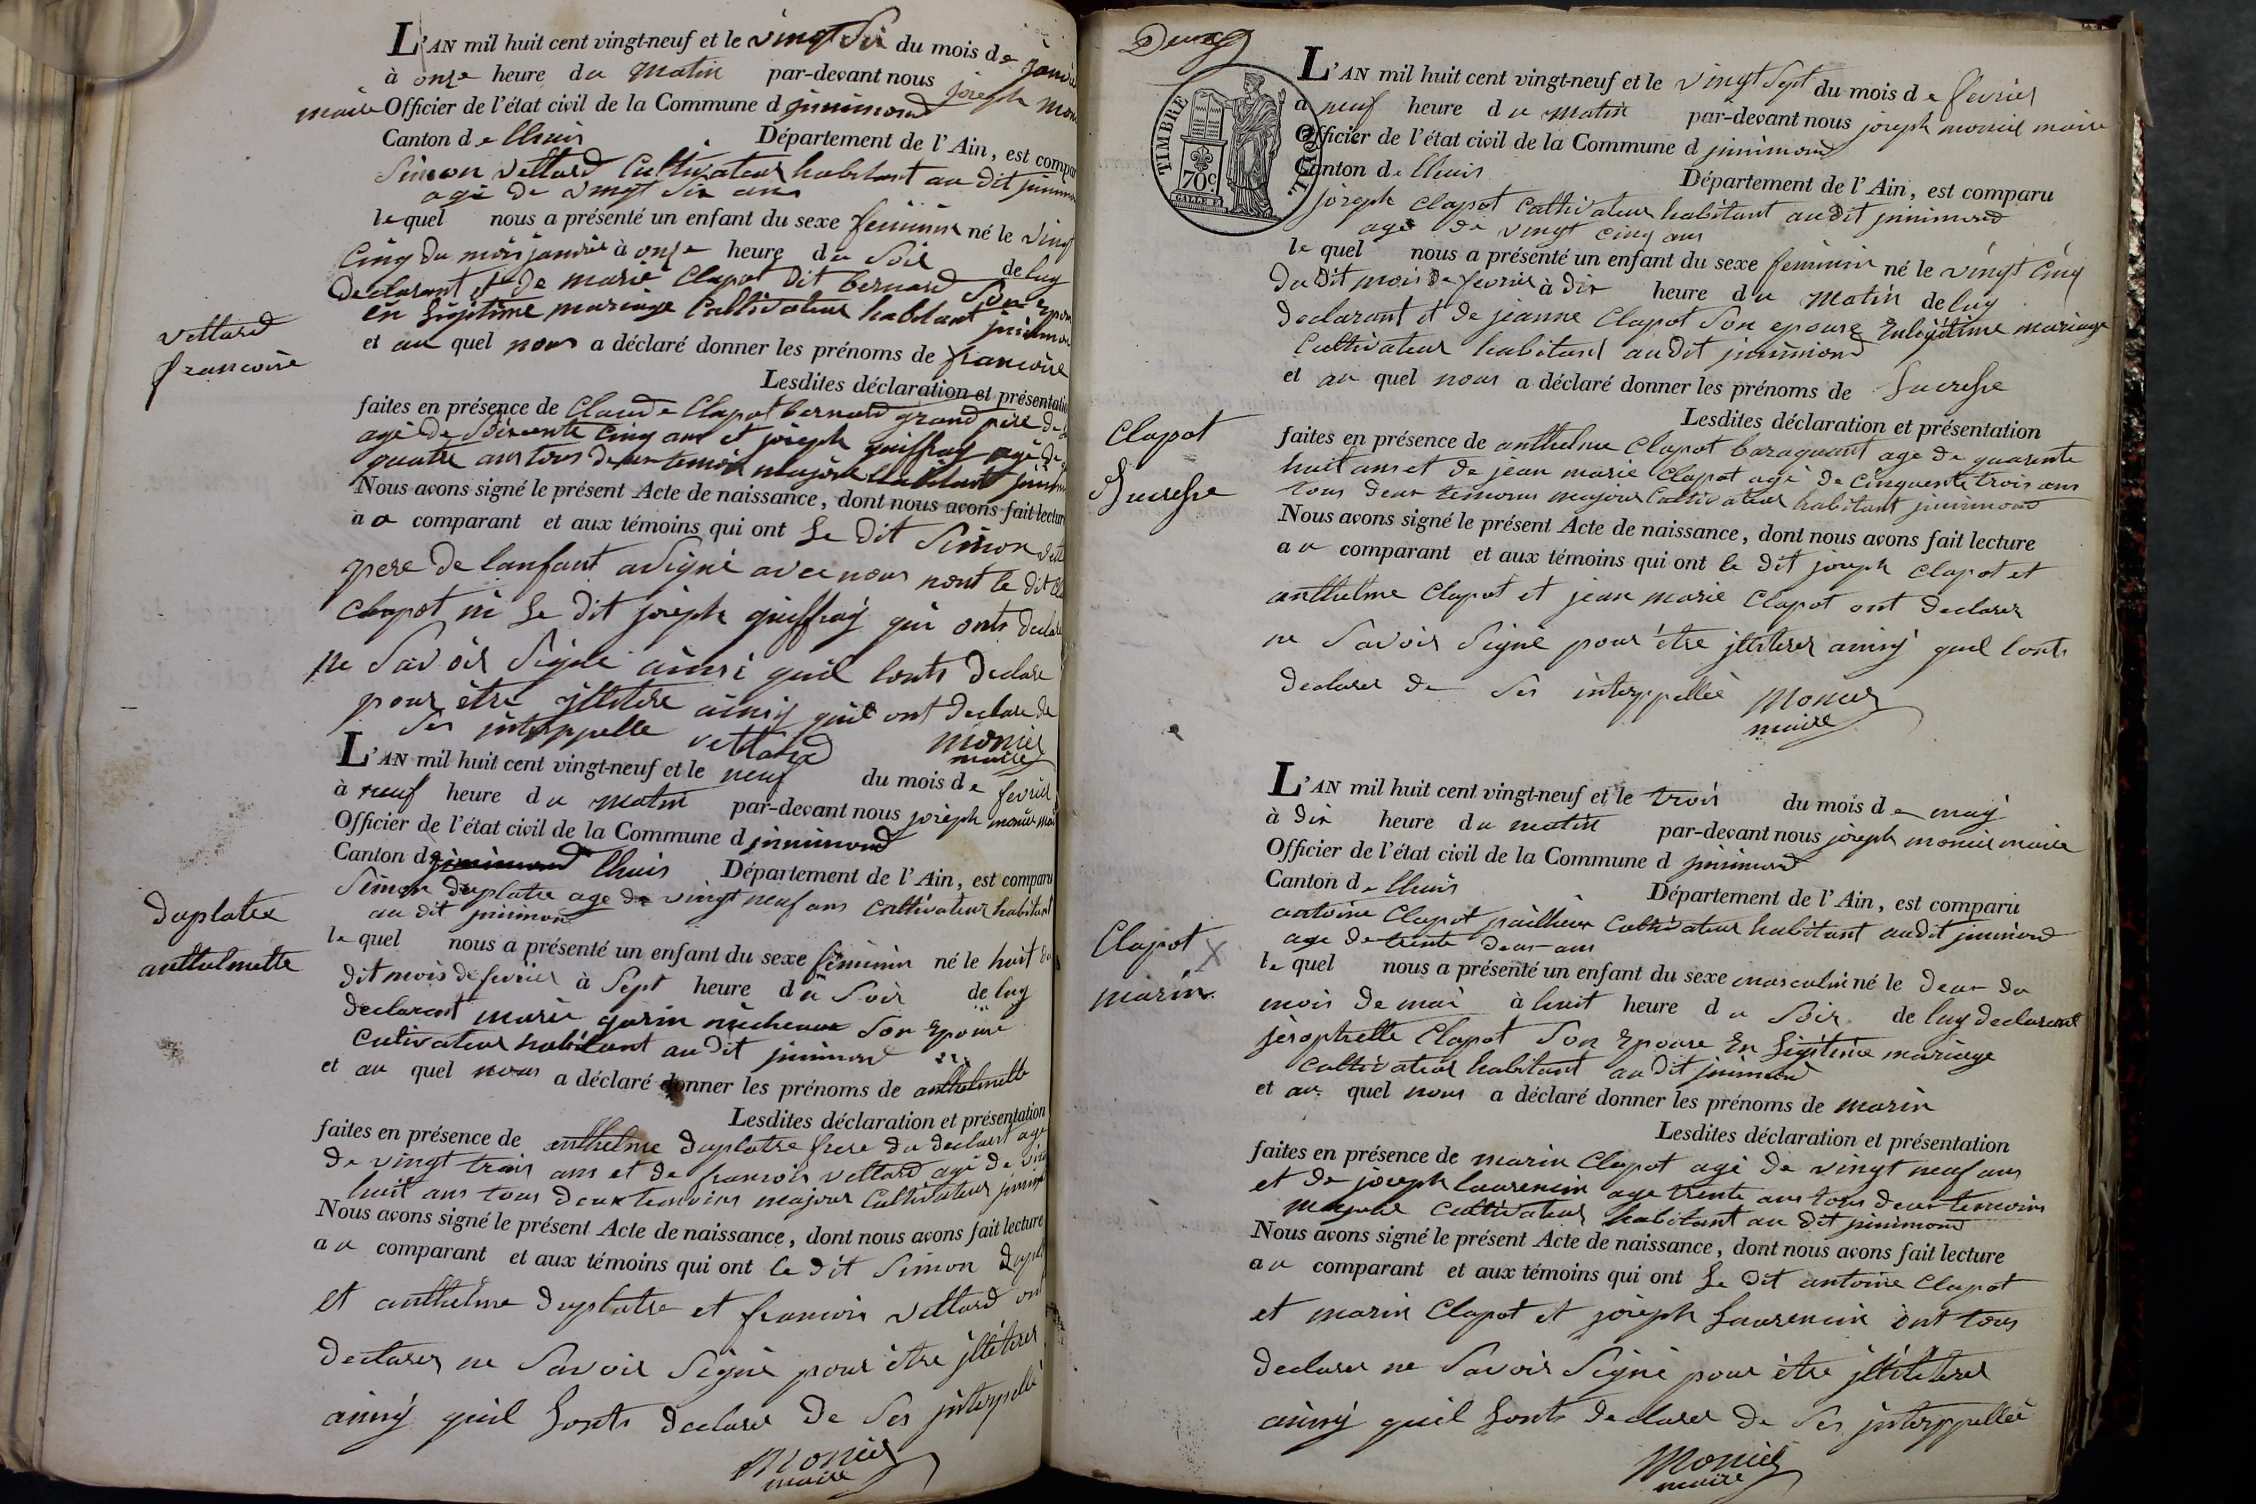 L'AN mil huit cent vingt-neuf et le vingt Six du mois de janvier
à onze heure du matin par-devant nous joseph
maire Officier de l'état civil de la Commune d jnnimond
Canton de lhuis Département de l'Ain, est comparu
Simon vettard Cultivateur habitant au dit jnnimond
agé de vingt six ans
lequel nous a présenté un enfant du sexe feminin né le vingt
Cinq du mois janvier à onze heure du Soir de luy
declarant et de marie Clapot dit bernard Son epouse
en Légitime mariage Cultivateur habitant jnnimond
et au quel nous a déclaré donner les prénoms de francoise
vettard
francoise
Lesdites déclaration et présentation
faites en présence de Claude Clapot bernard grand pere de
agé de Soixente Cinq ans et joseph guiffray agé de
quatre ans tous deux temoin majeur habitant jnnimond
Nous avons signé le présent Acte de naissance, dont nous avons fait lecture
au comparant et aux témoins qui ont Le dit Simon
pere de lanfant a Signé avec nous nont le dit
Clapot ni Le dit joseph guiffray qui onts declare
ne Savoir Signé ainsi quil lonts declare
pour être jlliterer ainsy quil ont declare de
Ses jnterppelle vettard monier
maire
L'AN mil huit cent vingt-neuf et le neuf du mois de fevrier
à neuf heure du matin par-devant nous joseph monier
Officier de l'état civil de la Commune d jnnimond
Canton d lhuis Département de l'Ain, est comparu
Simon duplatre age de vingt neuf ans Cultivateur habitant
au dit jnnimond
lequel nous a présenté un enfant du sexe feminin né le huit du
dit mois de fevrier à Sept heure du Soir de luy
declarant marie garin micheaux Son Epouse
Cultivateur habitant au dit jnnimond
et au quel nous a déclaré donner les prénoms de anthelmette
duplatre
anthelmette
Lesdites déclaration et présentation
faites en présence de anthelme duplatre frere du declarent agé
de vingt trois ans et de francois vettard agé de vingt
huit ans tous deux temoins majeur Cultivateur jnnimond
Nous avons signé le présent Acte de naissance, dont nous avons fait lecture
au comparant et aux témoins qui ont le dit Simon
et anthelme duplatre et francois vettard ont
declarer ne Savoir Signé pour être jlliterer
ainsy quil Lonts declarer de Ses jnterpellé
monier
maire
Deux
TIMBRE ROYAL
70c.
L'AN mil huit cent vingt-neuf et le vingt Sept du mois de fevrier
à neuf heure du matin par-devant nous joseph monier maire
Officier de l'état civil de la Commune d jnnimond
Canton de lhuis Département de l'Ain, est comparu
joseph Clapot Cultivateur habitant audit jnnimond
agé de vingt cinq ans
lequel nous a présenté un enfant du sexe feminin né le vingt Cinq
du dit mois de fevrier à dix heure du matin de luy
declarant et de jeanne Clapot Son epouse En legitime mariage
Cultivateur habitant audit jnnimond
et au quel nous a déclaré donner les prénoms de Lucresse
Clapot
Lucresse
Lesdites déclaration et présentation
faites en présence de anthelme Clapot baraquant age de quarente
huit ans et de jean marie Clapot agé de Cinquente trois ans
tous deux temoins majeur Cultivateur habitant jnnimond
Nous avons signé le présent Acte de naissance, dont nous avons fait lecture
au comparant et aux témoins qui ont le dit joseph Clapot et
anthelme Clapot et jean marie Clapot ont declarer
ne Savoir Signé pour être jlliterer ainsy quel lonts
declarer de Ses interppellée monier
maire
L'AN mil huit cent vingt-neuf et le trois du mois de may
à dix heure du matin par-devant nous joseph monier maire
Officier de l'état civil de la Commune d jnnimond
Canton de lhuis Département de l'Ain, est comparu
antoine Clapot pailleux Cultivateur habitant audit jnnimond
age de trente deux ans
lequel nous a présenté un enfant du sexe masculin né le deux du
mois de mai à huit heure du Soir de luy declarant
josephette Clapot Son Epouse En Légitime mariage
Cultivateur habitant au dit jnnimond
et au quel nous a déclaré donner les prénoms de marin
Clapot X
marin
Lesdites déclaration et présentation
faites en présence de marin Clapot agé de vingt neuf ans
et de joseph laurencin age trente ans tous deux temoins
majeur Cultivateur habitant au dit jnnimond
Nous avons signé le présent Acte de naissance, dont nous avons fait lecture
au comparant et aux témoins qui ont Le dit antoine Clapot
et marin Clapot et joseph Laurencin ont tous
declarer ne Savoir Signé pour être jlliterer
ainsy quil Lonts declarer de Ses jnterppellée
Monier
maire